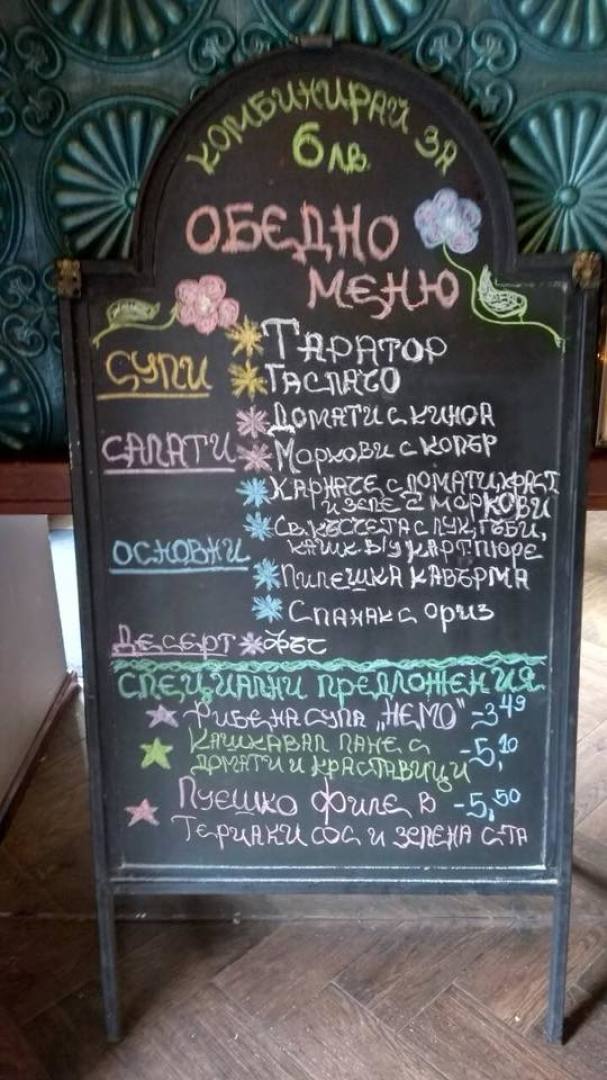 КОМБИНИРАЙ ЗА
6 лв.
ОБЕДНО
МЕНЮ
СУПИ
ТАРАТОР
ГАСПАЧО
САЛАТИ
ДОМАТИ С КИНОА
МОРКОВИ С КОПЪР
ОСНОВНИ
КАРНАЧЕ С ДОМАТИ, КРАСТ
И ЗЕЛЕ С МОРКОВИ
СВ. КЪСЧЕТА С ЛУК, ГЪБИ,
КАШК В/У КАРТ. ПЮРЕ
ПИЛЕШКА КАВЪРМА
СПАНАК С ОРИЗ
ДЕСЕРТ
СПЕЦИАЛНИ ПРЕДЛОЖЕНИЯ
РИБЕНА СУПА „НЕМО" -3,49
КАШКАВАЛ ПАНЕ С -5,10
ДОМАТИ И КРАСТАВИЦИ
ПУЕШКО ФИЛЕ В -5,50
ТЕРИАКИ СОС И ЗЕЛЕНА С-ТА